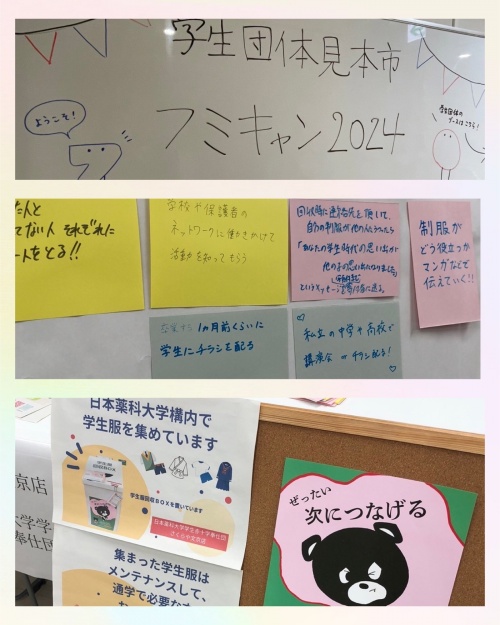 学生団体見本市
フミキャン2024
ようこそ!
学生団体の
ブースはこちら!
た人と
てない人 それぞれに
ーんをとる!!
学校や保護者の
ネットワークに働きかけて
活動を知ってもらう
回収時に連絡先を頂いて、
自分の制服が他の人にわたったら
「あなたの学生時代の思い出が
他の子の思い出になりました」
というメッセージを寄付者に送る。
制服が
どう役立つか
マンガなどで
伝えていく!!
1ヵ月前くらいに
学生にチラシを配る
私立の中学や高校で
講演会 or チラシ配る!
日本薬科大学構内で
学生服を集めています
学生服回収BOXを置いています
日本薬科大学学生赤十字奉仕団
さくらや文京店
京店
奉仕団
集まった学生服は
メンテナンスして、
通学で必要な方
ぜったい
次につなげる